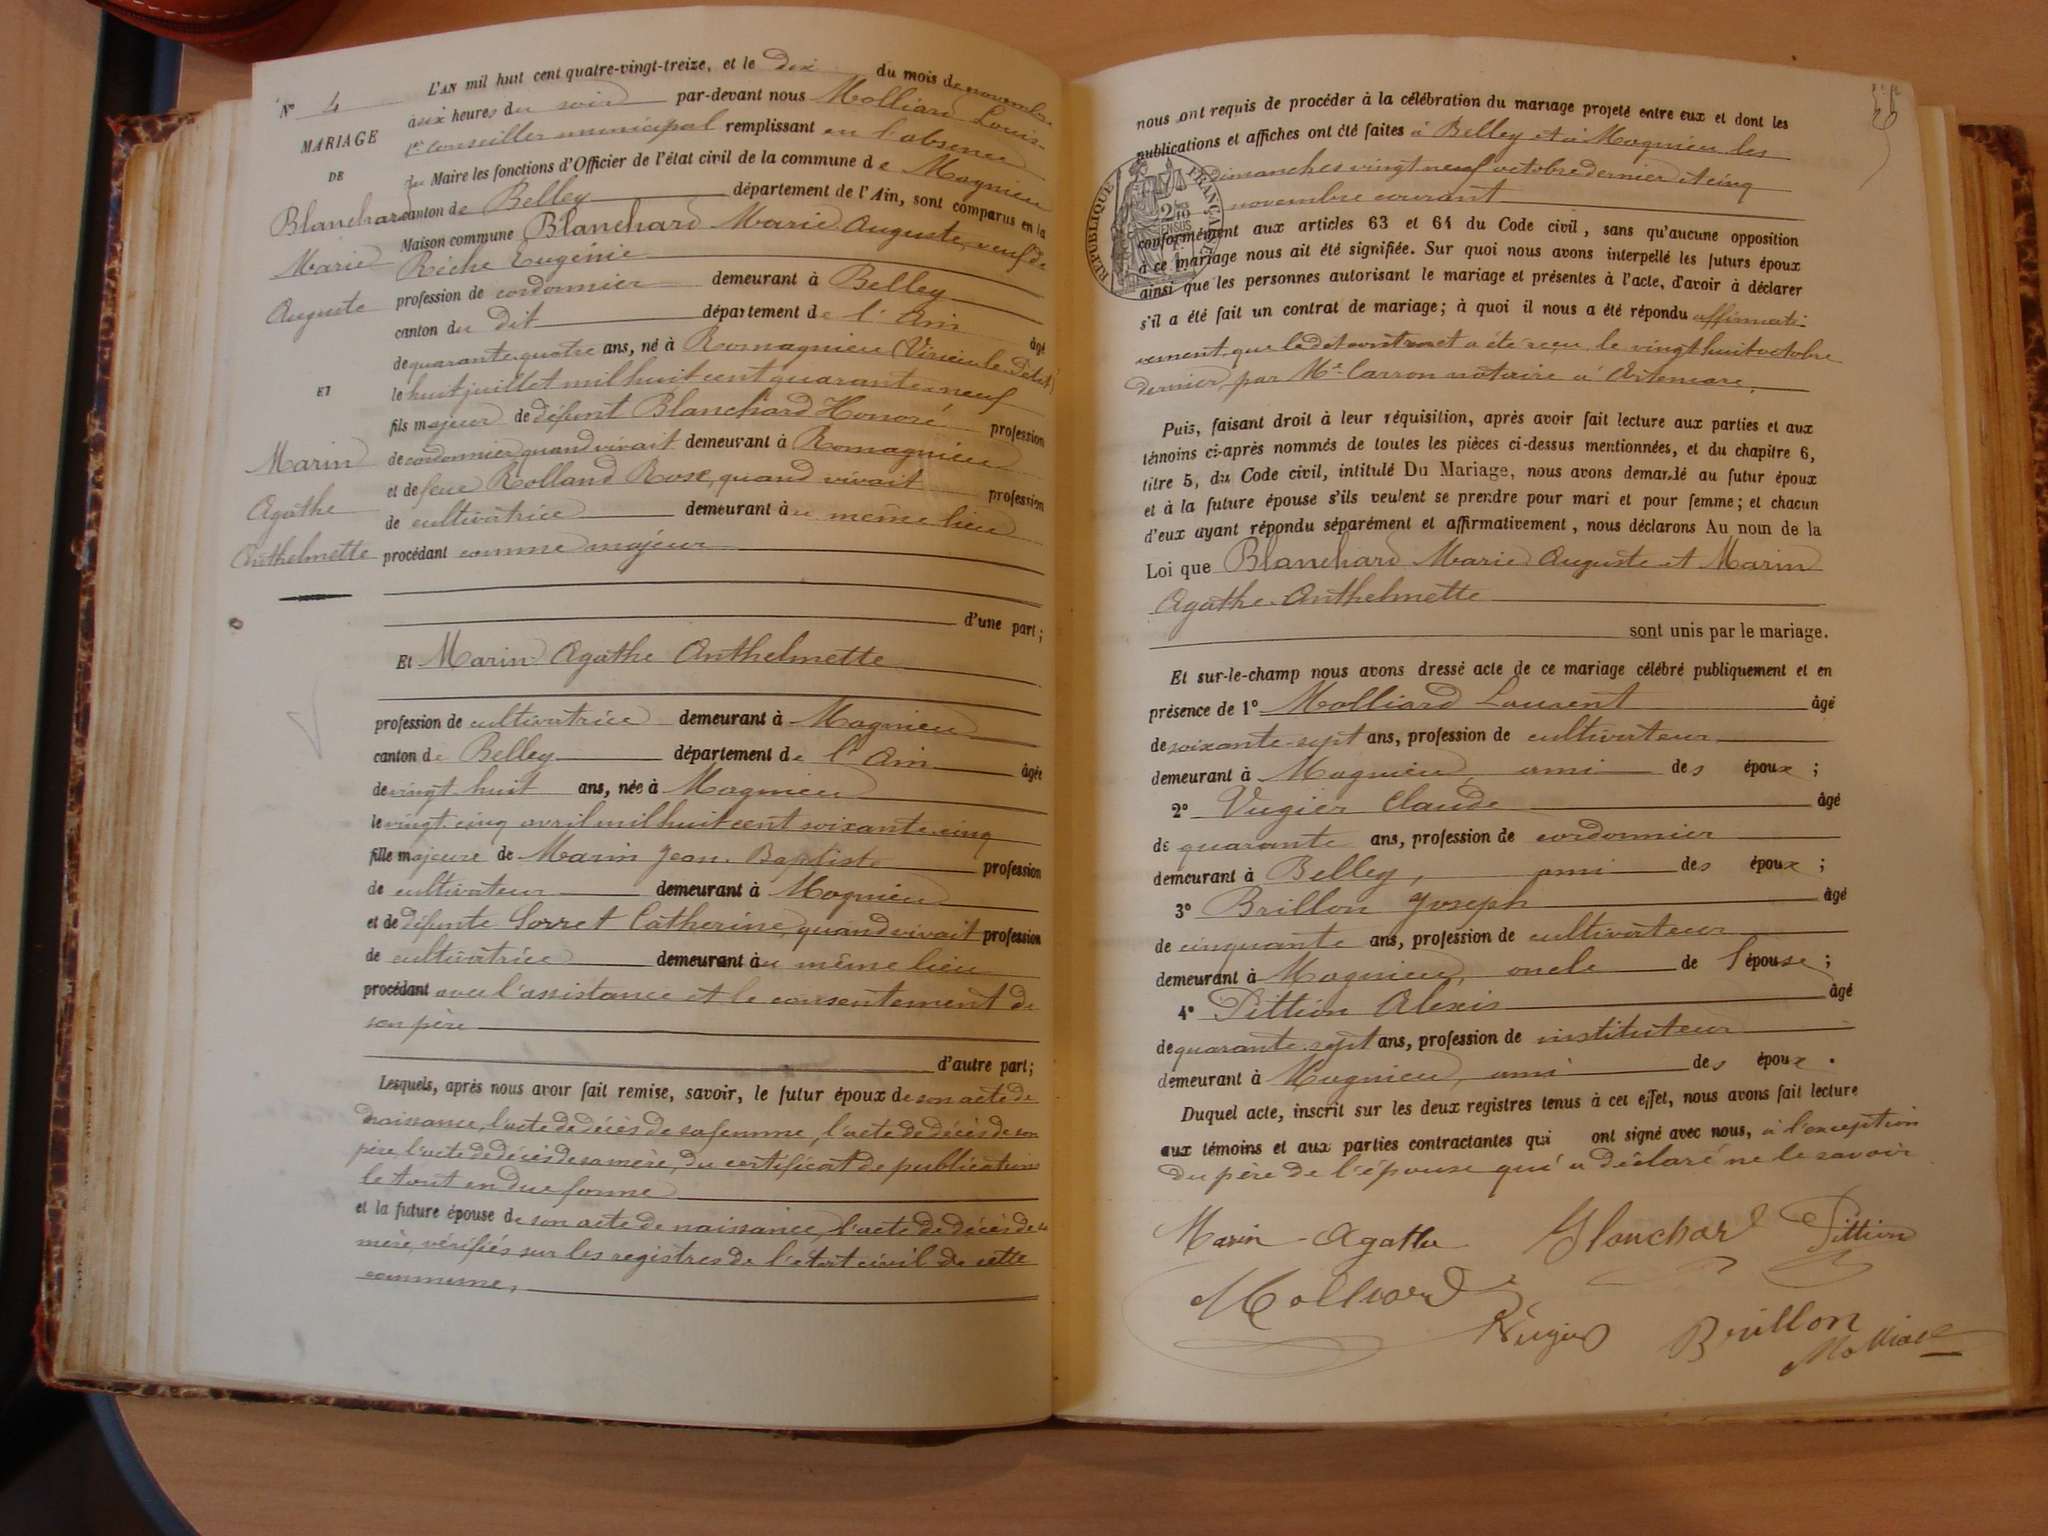 N° 4
MARIAGE
DE
Blanchard
Marie
Auguste
ET
Marin
Agathe
Anthelmette
L'AN mil huit cent quatre-vingt-treize, et le dix du mois de novembre
à six heures du soir par-devant nous Molliard Louis
1er conseiller municipal remplissant en l'absence
du Maire les fonctions d'Officier de l'état civil de la commune de Magnieu
canton de Belley département de l'Ain, sont comparus en la
Maison commune Blanchard Marie Auguste, veuf de
Rèche Eugénie
profession de cordonnier demeurant à Belley
canton du dit département de l'Ain âgé
de quarante quatre ans, né à Romagnieu (Virieu le Petit)
le huit juillet mil huit cent quarante-neuf
fils majeur de défunt Blanchard Honoré profession
de cordonnier quand vivait demeurant à Romagnieu
et de feue Rolland Rose, quand vivait profession
de cultivatrice demeurant au même lieu
procédant comme majeur
d'une part;
Et Marin Agathe Anthelmette
profession de cultivatrice demeurant à Magnieu
canton de Belley département de l'Ain âgée
de vingt huit ans, née à Magnieu
le vingt cinq avril mil huit cent soixante cinq
fille majeure de Marin Jean Baptiste profession
de cultivateur demeurant à Magnieu
et de défunte Sorret Catherine, quand vivait profession
de cultivatrice demeurant au même lieu
procédant avec l'assistance et le consentement de
son père
d'autre part;
Lesquels, après nous avoir fait remise, savoir, le futur époux de son acte de
naissance, l'acte de décès de sa femme, l'acte de décès de son
père, l'acte de décès de sa mère, du certificat de publications
le tout en due forme
et la future épouse de son acte de naissance, l'acte de décès de sa
mère, vérifiés sur les registres de l'état civil de cette
commune,
nous ont requis de procéder à la célébration du mariage projeté entre eux et dont les
publications et affiches ont été faites à Belley et à Magnieu les
dimanches vingt neuf octobre dernier et cinq
novembre courant
RÉPUBLIQUE FRANÇAISE
conformément aux articles 63 et 64 du Code civil, sans qu'aucune opposition
à ce mariage nous ait été signifiée. Sur quoi nous avons interpellé les futurs époux
ainsi que les personnes autorisant le mariage et présentes à l'acte, d'avoir à déclarer
s'il a été fait un contrat de mariage; à quoi il nous a été répondu affirmati-
vement, que le dit contrat a été reçu le vingt huit octobre
dernier, par Me Carron notaire à Artemare.
Puis, faisant droit à leur réquisition, après avoir fait lecture aux parties et aux
témoins ci-après nommés de toutes les pièces ci-dessus mentionnées, et du chapitre 6,
titre 5, du Code civil, intitulé Du Mariage, nous avons demandé au futur époux
et à la future épouse s'ils veulent se prendre pour mari et pour femme; et chacun
d'eux ayant répondu séparément et affirmativement, nous déclarons Au nom de la
Loi que Blanchard Marie Auguste et Marin
Agathe Anthelmette
sont unis par le mariage.
Et sur-le-champ nous avons dressé acte de ce mariage célébré publiquement et en
présence de 1° Molliard Laurent âgé
de soixante-sept ans, profession de cultivateur
demeurant à Magnieu, ami des époux;
2° Vugier Claude âgé
de quarante ans, profession de cordonnier
demeurant à Belley, ami des époux;
3° Brillon Joseph âgé
de cinquante ans, profession de cultivateur
demeurant à Magnieu, oncle de l'épouse;
4° Pittion Alexis âgé
de quarante-sept ans, profession de instituteur
demeurant à Magnieu, ami des époux.
Duquel acte, inscrit sur les deux registres tenus à cet effet, nous avons fait lecture
aux témoins et aux parties contractantes qui ont signé avec nous, à l'exception
du père de l'épouse qui a déclaré ne le savoir
Marin Agathe Blanchard Pittion
Molliard Vugier Brillon
Molliard